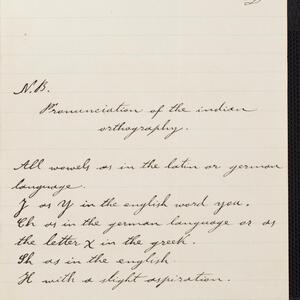 N.B.
Pronunciation of the indian
orthography.
All wowels as in the latin or german
language.
J as Y in the english word you.
Ch as in the german language or as
the letter χ in the greek.
Sh as in the english.
H with a slight aspiration.